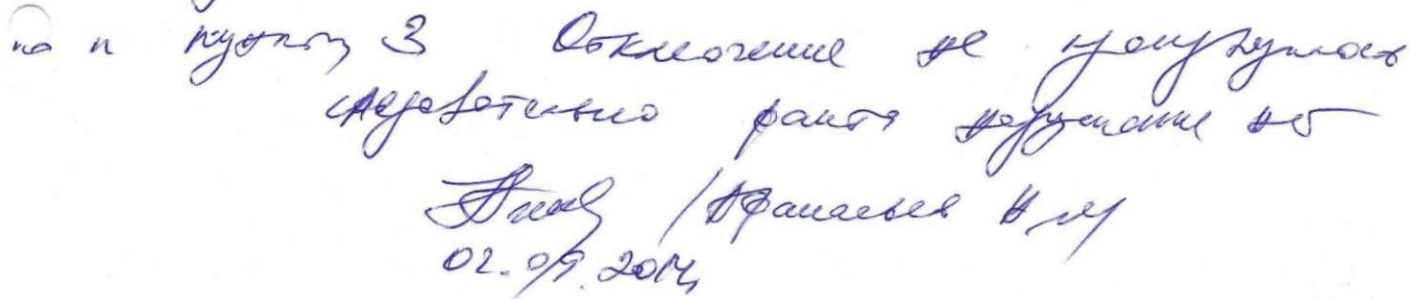 по п пункту 3 Отключение не производилось
следовательно факта нарушения нет
/Афанасьев Н М
02.09.2014